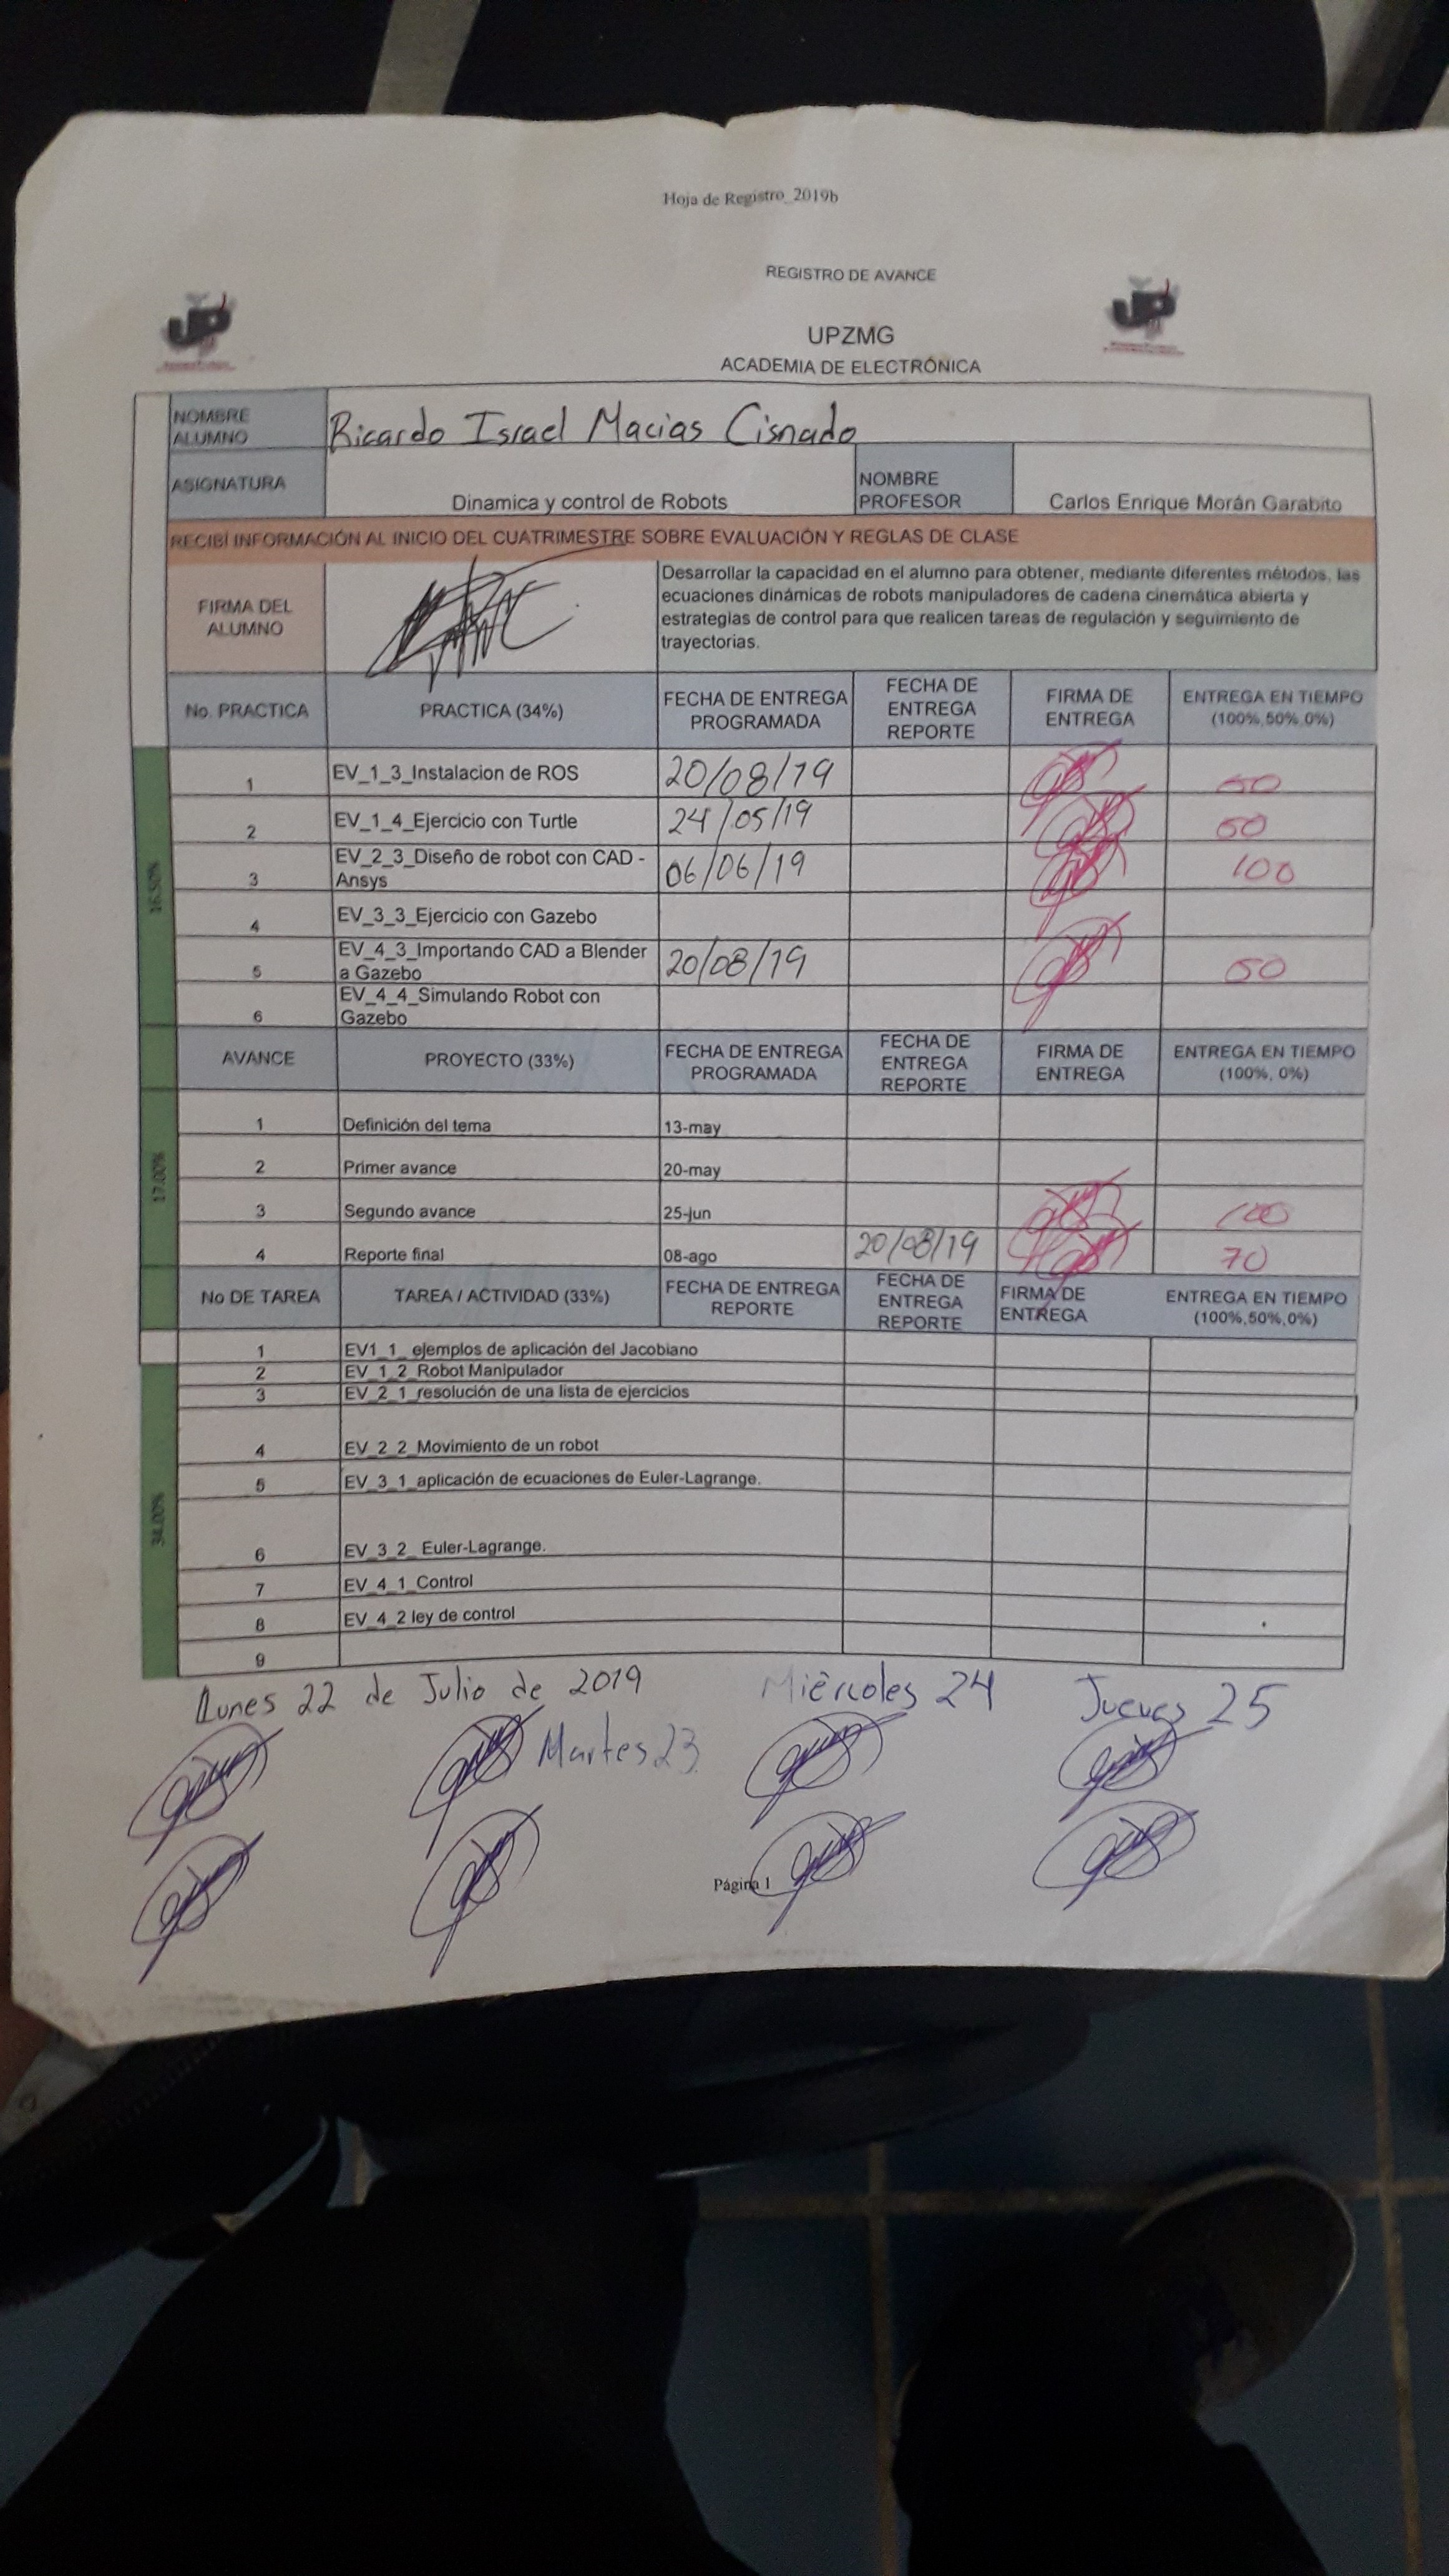 Hoja de Registro_2019b
REGISTRO DE AVANCE
UPZMG
ACADEMIA DE ELECTRÓNICA
NOMBRE ALUMNO Ricardo Israel Macias Cisnado
ASIGNATURA Dinamica y control de Robots NOMBRE PROFESOR Carlos Enrique Morán Garabito
RECIBÍ INFORMACIÓN AL INICIO DEL CUATRIMESTRE SOBRE EVALUACIÓN Y REGLAS DE CLASE
FIRMA DEL ALUMNO
Desarrollar la capacidad en el alumno para obtener, mediante diferentes métodos, las
ecuaciones dinámicas de robots manipuladores de cadena cinemática abierta y
estrategias de control para que realicen tareas de regulación y seguimiento de
trayectorias.
No. PRACTICA PRACTICA (34%) FECHA DE ENTREGA PROGRAMADA FECHA DE ENTREGA REPORTE FIRMA DE ENTREGA ENTREGA EN TIEMPO (100%,50%,0%)
16.50%
1 EV_1_3_Instalacion de ROS 20/08/19 50
2 EV_1_4_Ejercicio con Turtle 24/05/19 50
3 EV_2_3_Diseño de robot con CAD - Ansys 06/06/19 100
4 EV_3_3_Ejercicio con Gazebo
5 EV_4_3_Importando CAD a Blender a Gazebo 20/08/19 50
6 EV_4_4_Simulando Robot con Gazebo
AVANCE PROYECTO (33%) FECHA DE ENTREGA PROGRAMADA FECHA DE ENTREGA REPORTE FIRMA DE ENTREGA ENTREGA EN TIEMPO (100%, 0%)
17.00%
1 Definición del tema 13-may
2 Primer avance 20-may
3 Segundo avance 25-jun 100
4 Reporte final 08-ago 20/08/19 70
No DE TAREA TAREA / ACTIVIDAD (33%) FECHA DE ENTREGA REPORTE FECHA DE ENTREGA REPORTE FIRMA DE ENTREGA ENTREGA EN TIEMPO (100%,50%,0%)
34.00%
1 EV1_1_ ejemplos de aplicación del Jacobiano
2 EV_1_2_Robot Manipulador
3 EV_2_1_resolución de una lista de ejercicios
4 EV_2_2_Movimiento de un robot
5 EV_3_1_aplicación de ecuaciones de Euler-Lagrange.
6 EV_3_2_ Euler-Lagrange.
7 EV_4_1_Control
8 EV_4_2 ley de control
9
Lunes 22 de Julio de 2019 Miércoles 24 Jueves 25
Martes 23
Página 1